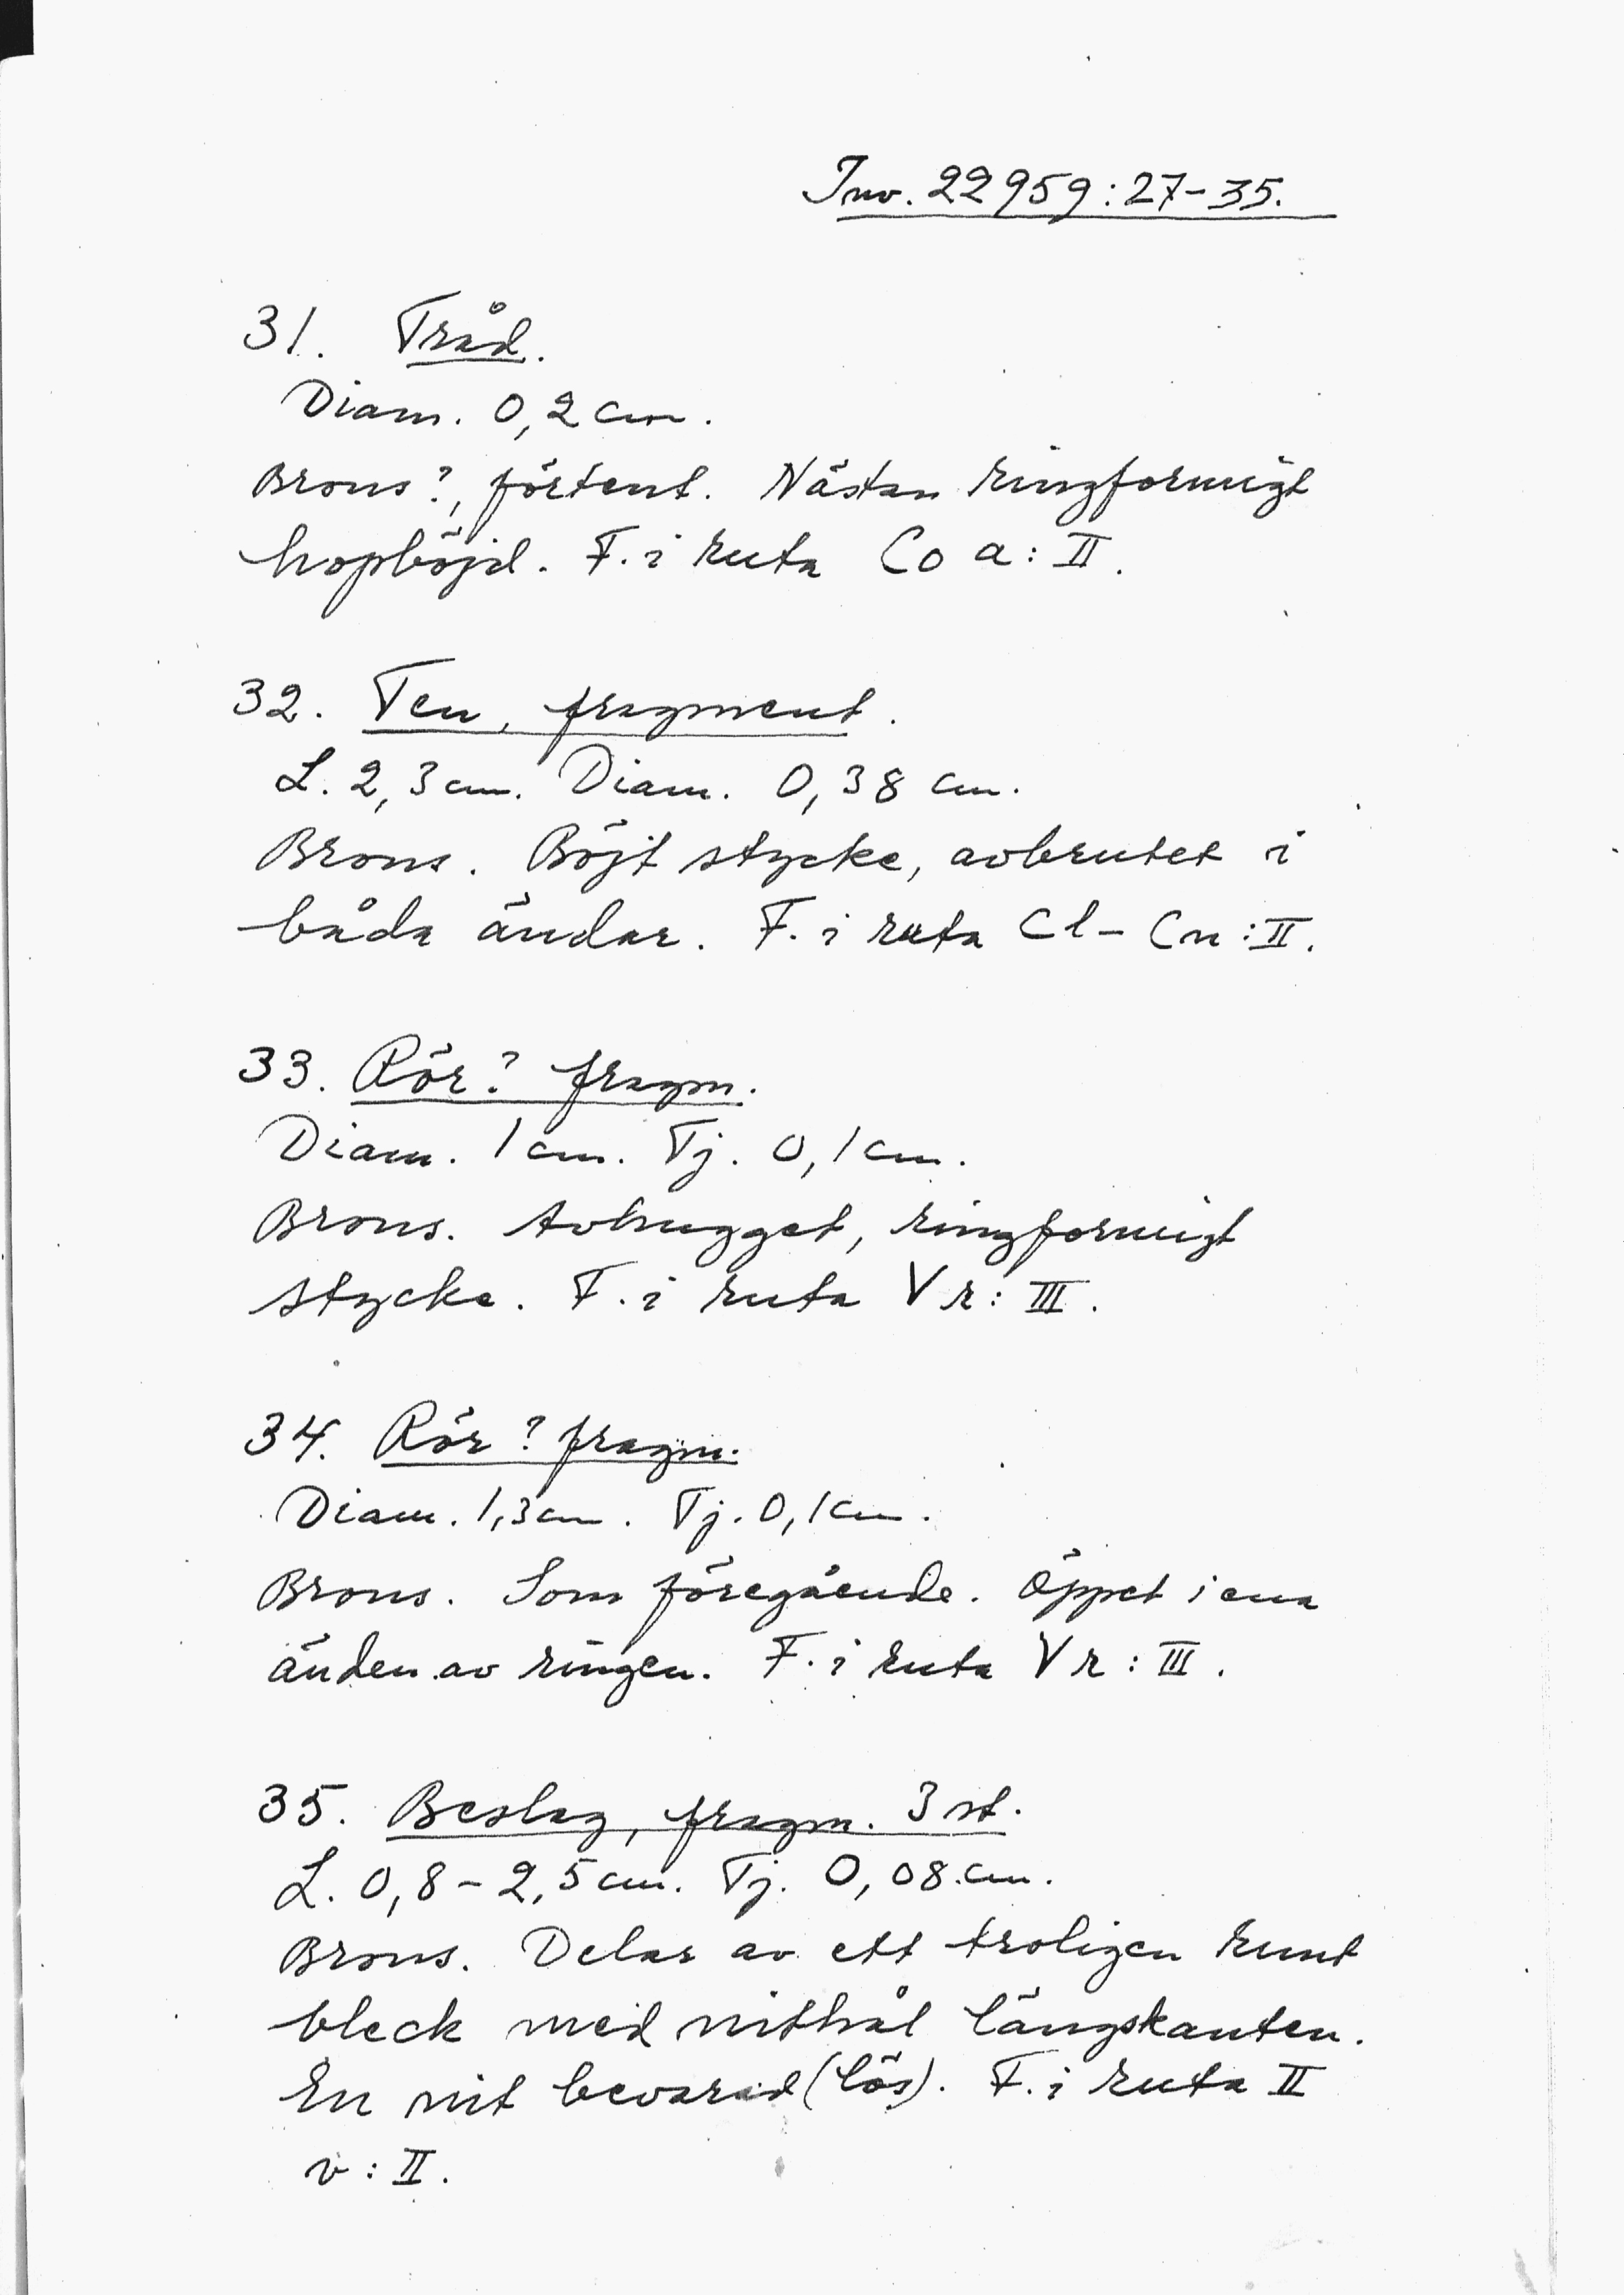 Inv. 22959:27-35.
31. Tråd.
Diam. 0,2 cm.
Brons?, förtent. Nästan ringformigt
hopböjd. F. i ruta Co a: II.
32. Ten, fragment.
L. 2,3 cm. Diam. 0,38 cm.
Brons. Böjt stycke, avbrutet i
båda ändar. F. i ruta Cl - Cn : II.
33. Rör? fragm.
Diam. 1 cm. Tj. 0,1 cm.
Brons. Avhugget, ringformigt
stycke. F. i ruta V r: III.
34. Rör? fragm.
Diam. 1,3 cm. Tj. 0,1 cm.
Brons. Som föregående. Öppet i ena
änden av ringen. F. i ruta V r : III.
35. Beslag, fragm. 3 st.
L. 0,8 - 2,5 cm. Tj. 0,08 cm.
Brons. Delar av ett troligen runt
bleck med nithål längskanten.
En nit bevarad (lös). F. i ruta II
v : II.